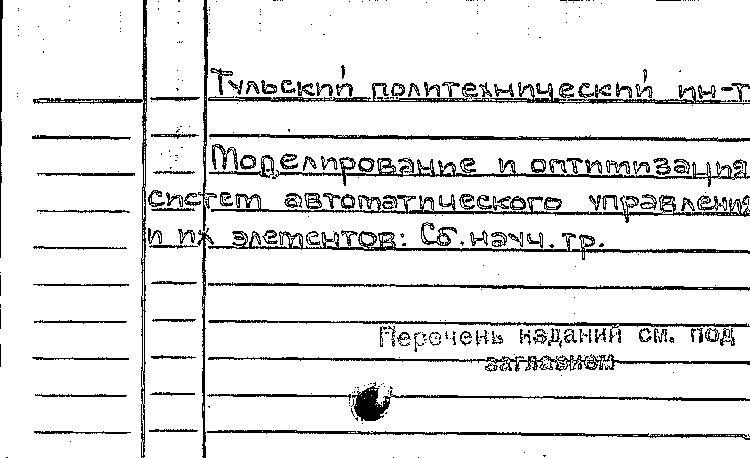 Тульский политехнический ин-т
Моделирование и оптимизация
систем автоматического управления
и их элементов: Сб. науч. тр.
Перечень изданий см. под
заглавием